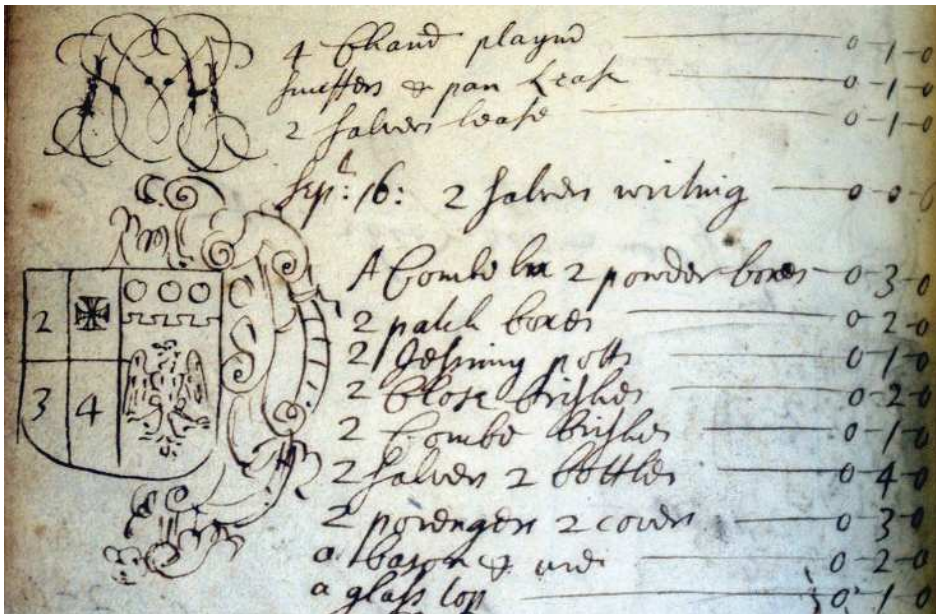 4 Chand playnd 0-1-0
snuffers & pan lease 0-1-0
2 salvers lease 0-1-0
Sep: 16: 2 salvers writing 0-0-6
A Combe box 2 powder boxes 0-3-0
2 patch boxes 0-2-0
2 potts 0-1-0
2 Close brishes 0-2-0
2 Combe brishes 0-1-0
2 salvers 2 bottles 0-4-0
2 porengers 2 covers 0-3-0
a bason & 0-2-0
a glass top 0-1-0
2
3 4